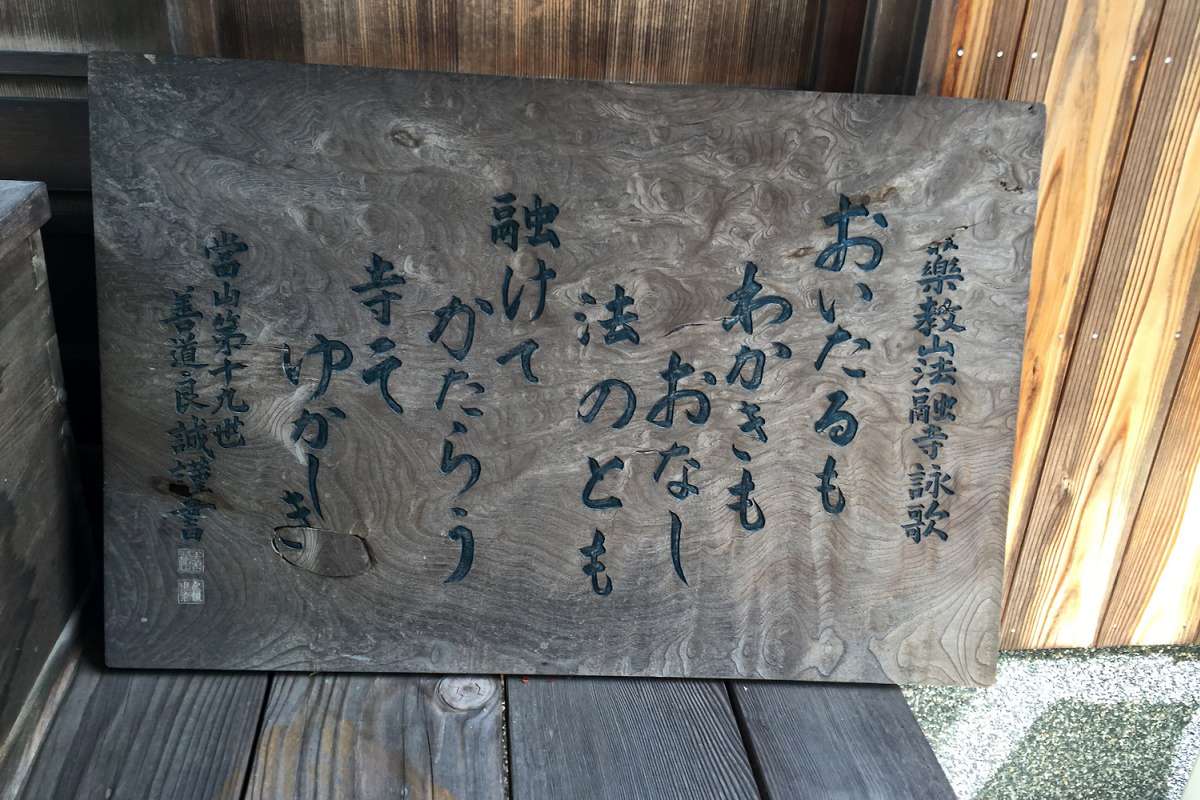 樂教山法融寺詠歌
おいたるも
わかきも
おなし
法のとも
融けて
かたらう
寺そ
ゆかしき
當山第十九世
善道良誠謹書